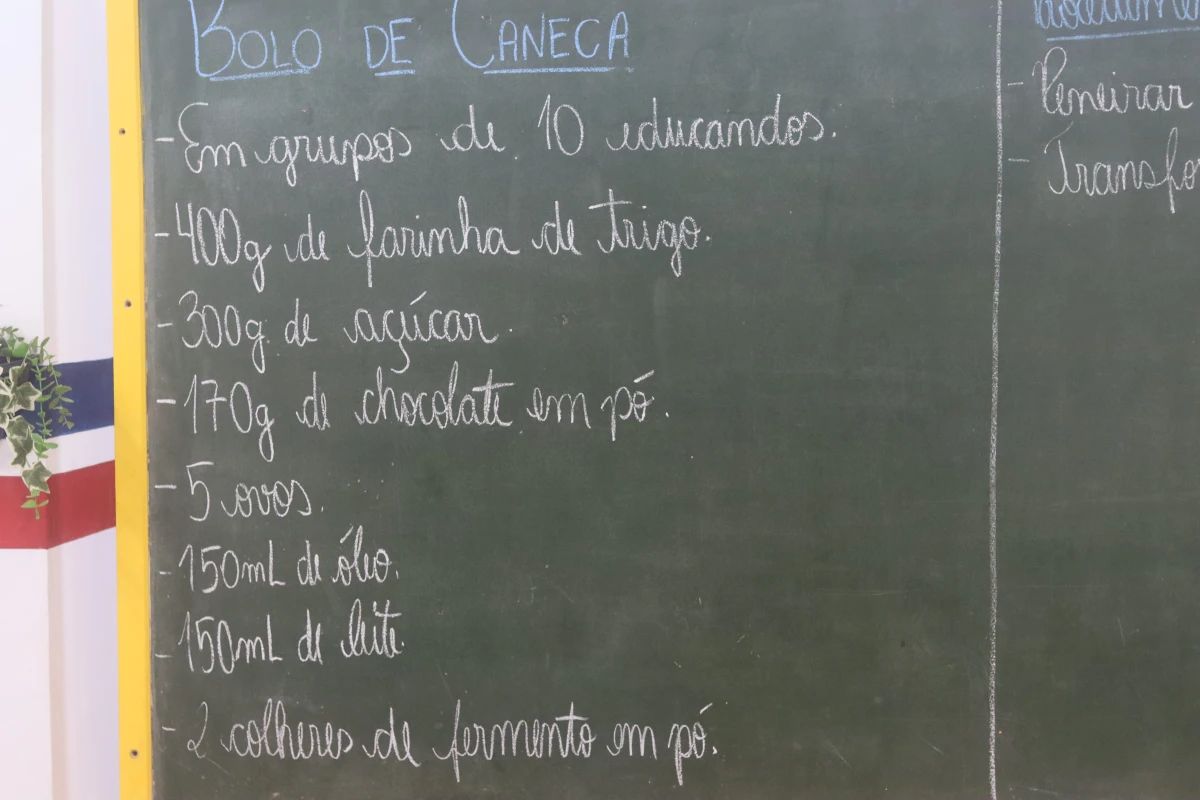 BOLO DE CANECA
- Em grupos de 10 educandos.
- 400g de farinha de trigo.
- 300g de açúcar.
- 170g de chocolate em pó.
- 5 ovos.
- 150mL de óleo.
- 150mL de leite.
- 2 colheres de fermento em pó.
- Peneirar